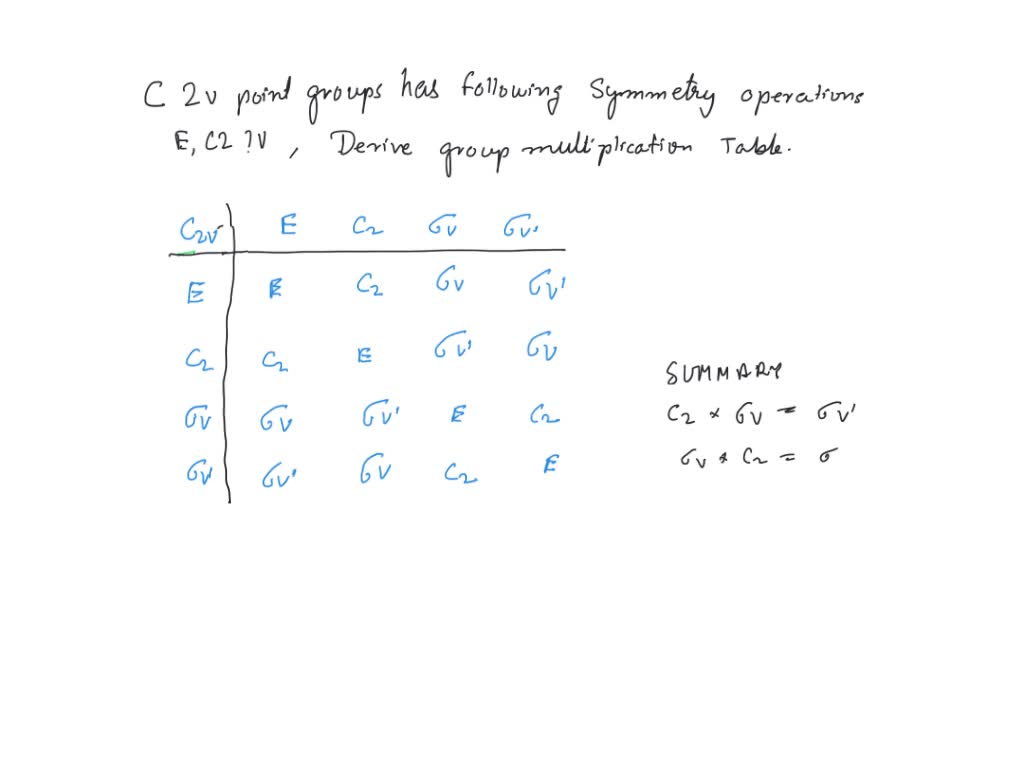 C 2v point groups has following Symmetry operations
E, C2 ?V , Derive group multiplication Table.
C2v E C2 σv σv'
E E C2 σv σv'
C2 C2 E σv' σv
σv σv σv' E C2
σv' σv' σv C2 E
SUMMARY
C2 * σv = σv'
σv * C2 = σ